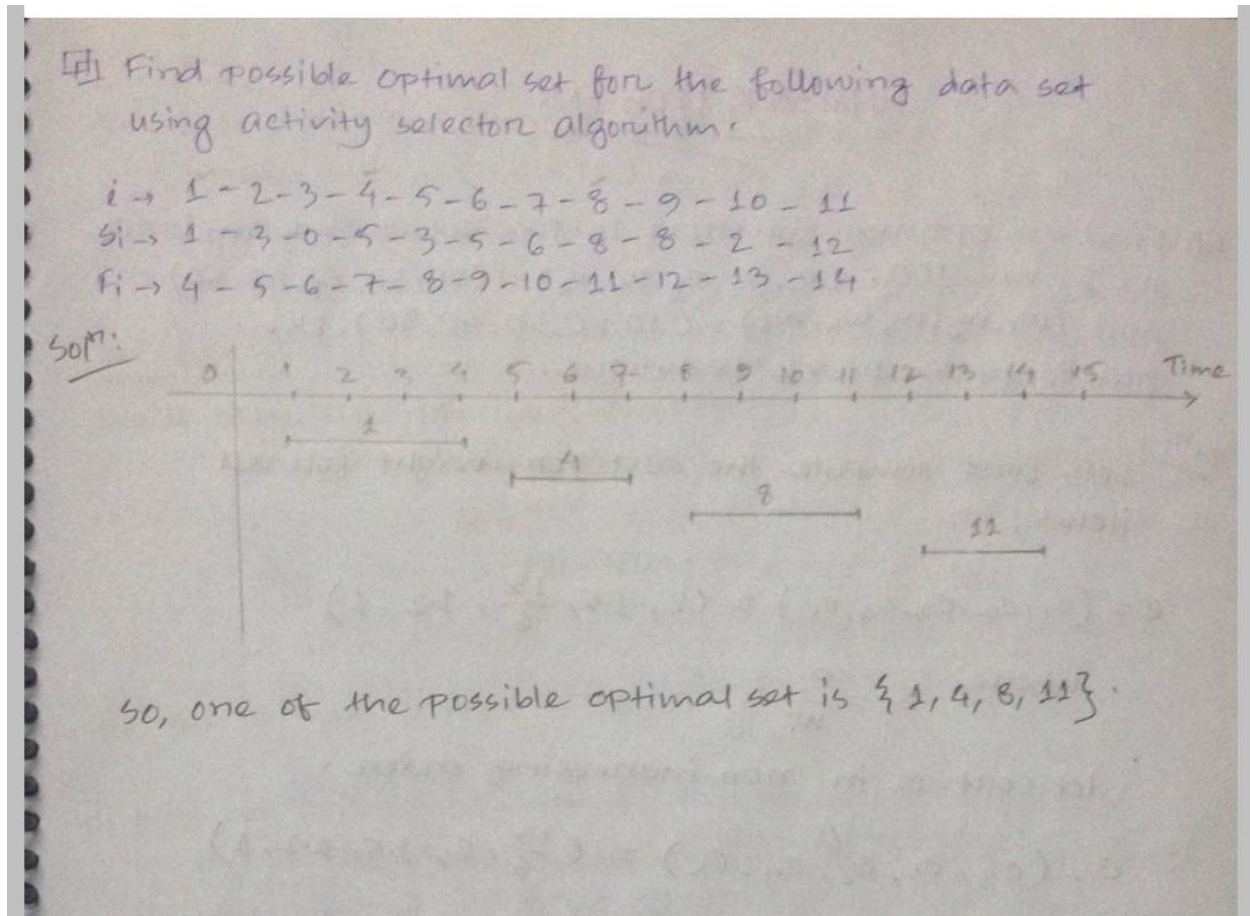 Find possible optimal set for the following data set
using activity selector algorithm.
i → 1 - 2 - 3 - 4 - 5 - 6 - 7 - 8 - 9 - 10 - 11
Si → 1 - 3 - 0 - 5 - 3 - 5 - 6 - 8 - 8 - 2 - 12
Fi → 4 - 5 - 6 - 7 - 8 - 9 - 10 - 11 - 12 - 13 - 14
Solⁿ:
0 1 2 3 4 5 6 7 8 9 10 11 12 13 14 15 Time
1
4
8
11
So, one of the possible optimal set is {1, 4, 8, 11}.